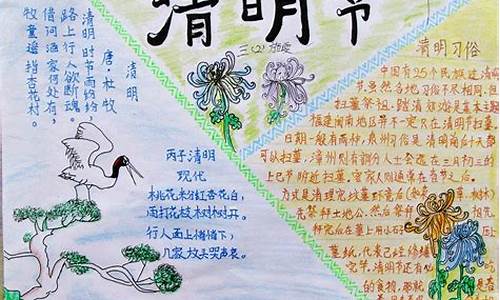 清明节
三（2）
清明
唐·杜牧
清明时节雨纷纷，
路上行人欲断魂。
借问酒家何处有，
牧童遥指杏花村。
丙子清明
现代
桃花米分红杏花白，
雨打花枝树树开。
行人面上
几家
哭声哀。
清明习俗
中国有25个民族过清明
节，虽然各地习俗不尽相同，但
扫墓祭祖、踏清郊游是基本主题
福建闽南地区并不一定只在清明节扫墓，
日期一般有两种，泉州习俗是清明前后十天都
可以扫墓，漳州则有部分人士会选在三月初三的
上巳节附近扫墓，客家则通常在春节之后。
方式是清理完坟墓环境后
先祭拜土地公，然后祭拜
拜完后在墓上用小石
墓纸，代表已经修缮
完毕。清明节还有
的食物，那就